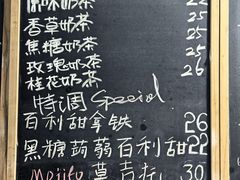 原味奶茶 22
香草奶茶 25
焦糖奶茶 25
玫瑰奶茶 25
桂花奶茶 26
特调 Special
百利甜拿铁 26
黑糖蒟蒻百利甜 22
Mojito 莫吉托 30